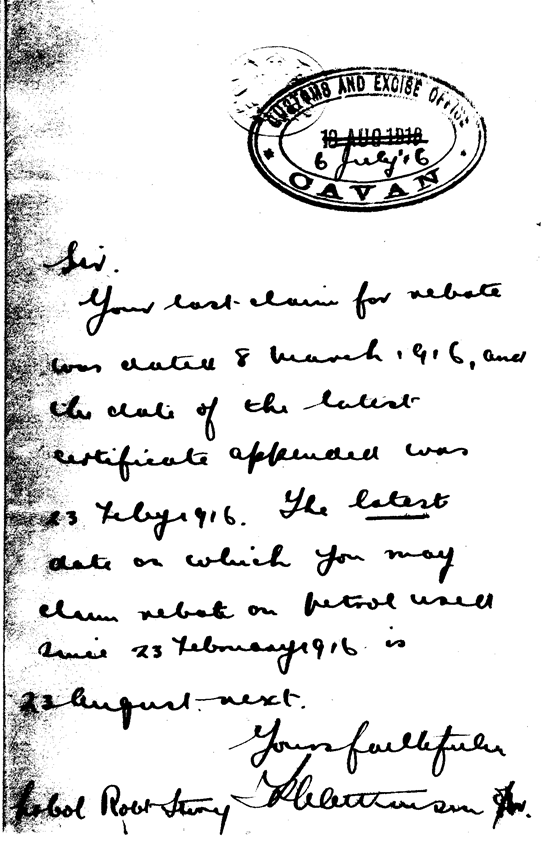 CUSTOMS AND EXCISE OFFICE
19 AUG 1916
6 July '16
CAVAN
Sir.
Your last claim for rebate
was dated 8 March 1916, and
the date of the latest
certificate appended was
23 Feby 1916. The latest
date on which you may
claim rebate on petrol used
since 23 February 1916 is
23 August next.
Yours faithfully
Robt Story